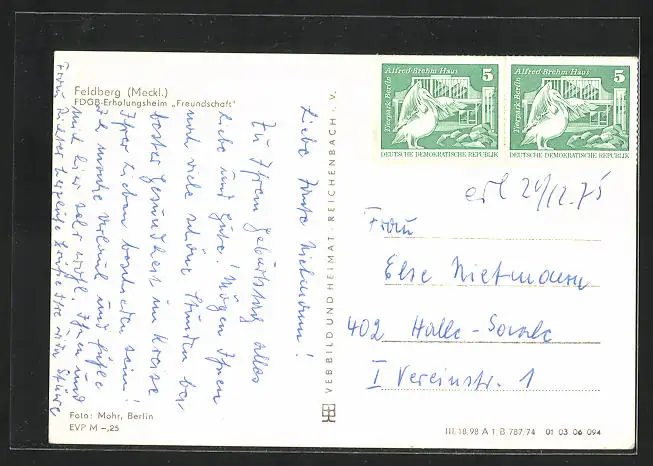 Feldberg (Meckl.)
FDGB-Erholungsheim „Freundschaft"
Liebe Frau Nietmann!
Zu Ihrem Geburtstag alles
Liebe und Gute! Mögen Ihnen
noch viele schöne Stunden bei
bester Gesundheit im Kreise
Ihrer Lieben beschieden sein!
Ich mache Urlaub und fühle
mich hier sehr wohl. Ihnen und
herzliche Grüße Ihre
Foto: Mohr, Berlin
EVP M –,25
VEB BILD UND HEIMAT · REICHENBACH i. V.
Alfred-Brehm-Haus
5
Tierpark Berlin
DEUTSCHE DEMOKRATISCHE REPUBLIK
Alfred-Brehm-Haus
5
Tierpark Berlin
DEUTSCHE DEMOKRATISCHE REPUBLIK
erl 20/12.75
Frau
Else Nietmann
402 Halle-Saale
I Vereinstr. 1
III.18.98 A 1 B 787/74 01 03 06 094